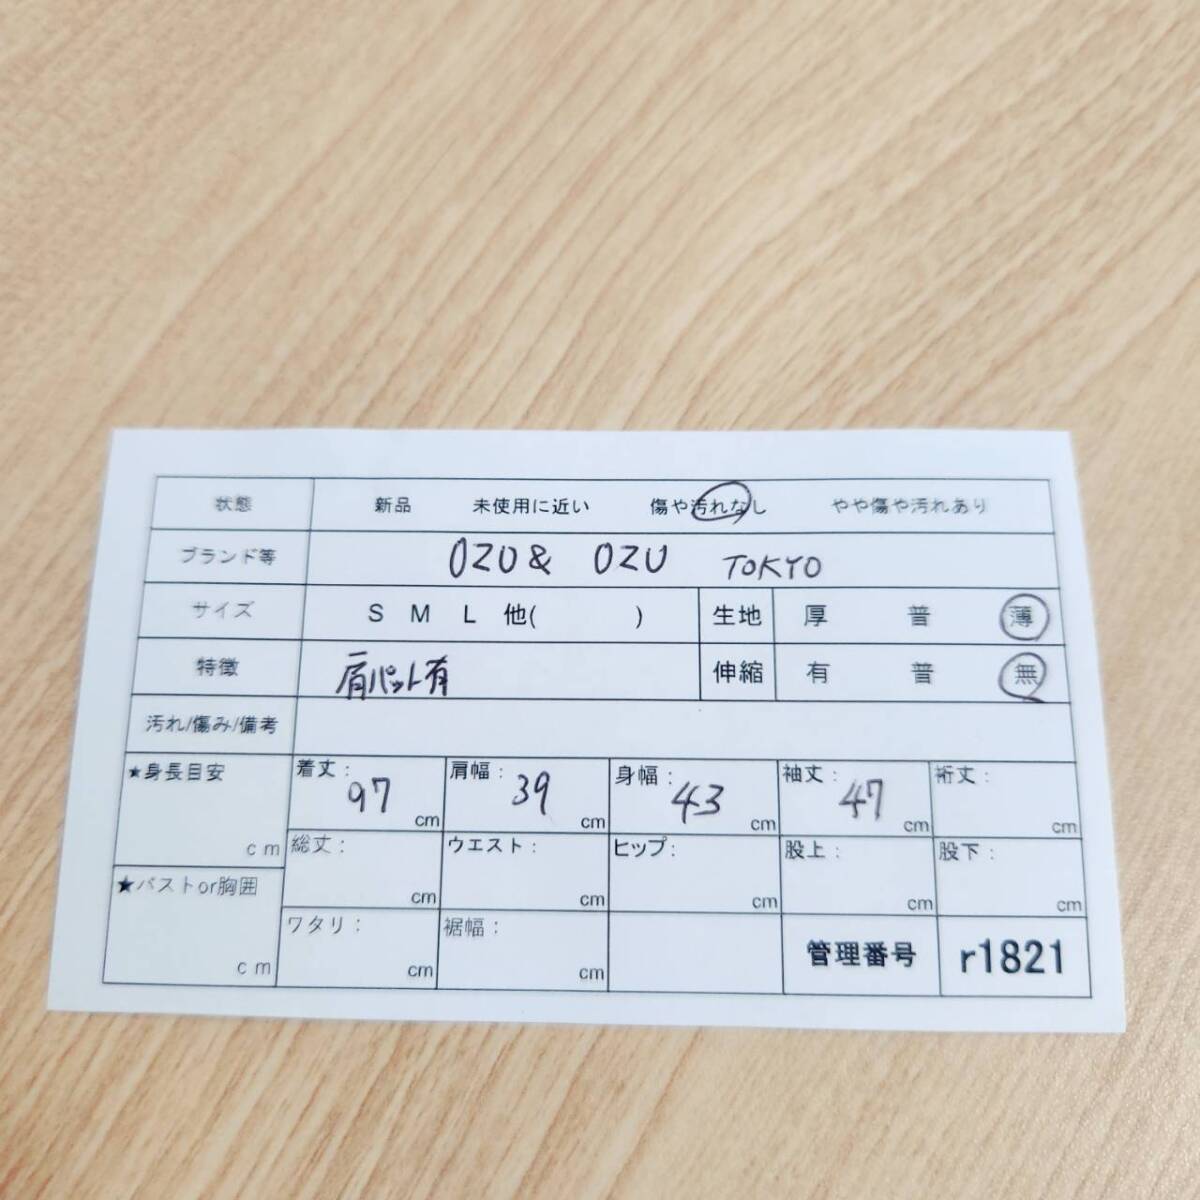 状態 新品 未使用に近い 傷や汚れなし やや傷や汚れあり
ブランド等 OZU & OZU TOKYO
サイズ S M L 他( ) 生地 厚 普 薄
特徴 肩パット有 伸縮 有 普 無
汚れ/傷み/備考
★身長目安 cm
着丈: 97 cm 肩幅: 39 cm 身幅: 43 cm 袖丈: 47 cm 裄丈: cm
総丈: cm ウエスト: cm ヒップ: cm 股上: cm 股下: cm
★バストor胸囲 cm
ワタリ: cm 裾幅: cm 管理番号 r1821